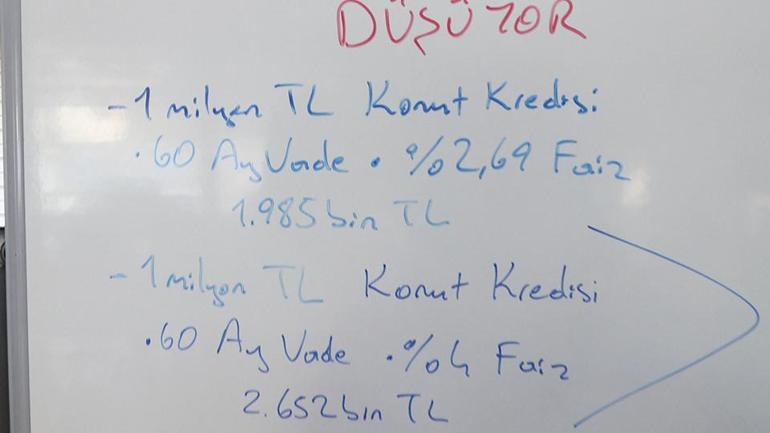 DÜŞÜYOR
-1 milyon TL Konut Kredisi
.60 Ay Vade . %2,69 Faiz
1.985 bin TL
-1 milyon TL Konut Kredisi
.60 Ay Vade . %4 Faiz
2.652 bin TL